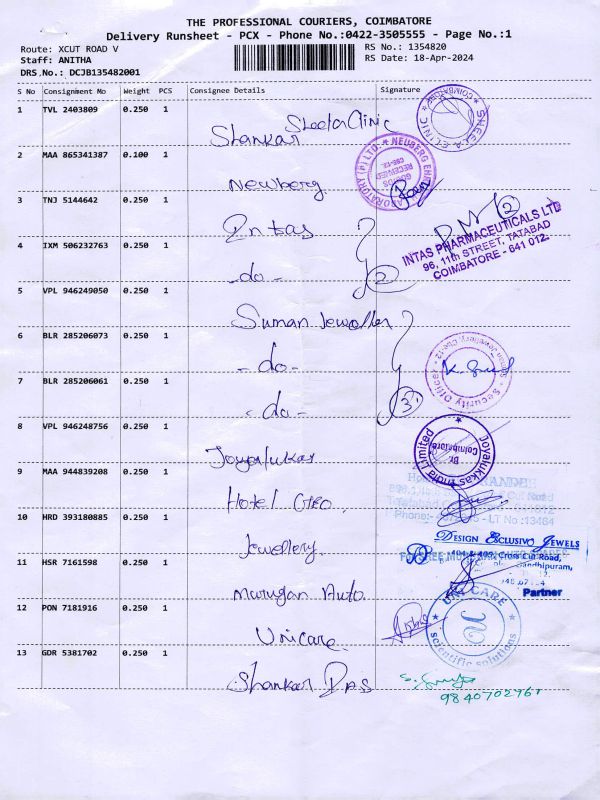 THE PROFESSIONAL COURIERS, COIMBATORE
Delivery Runsheet - PCX - Phone No.:0422-3505555 - Page No.:1
Route: XCUT ROAD V
RS No.: 1354820
Staff: ANITHA
RS Date: 18-Apr-2024
DRS No.: DCJB135482001
S No Consignment No Weight PCS Consignee Details Signature
1 TVL 2403809 0.250 1
Sheela Clinic
Shankar
SHEELA CLINIC
COIMBATORE
2 MAA 865341387 0.100 1
Newberg
NEUBERG EHRLICH LABORATORY (P) LTD.
GOODS RECEIVED
3 TNJ 5144642 0.250 1
Intas
INTAS PHARMACEUTICALS LTD
96, 11th STREET, TATABAD
COIMBATORE - 641 012.
4 IXM 506232763 0.250 1
-do- 2
5 VPL 946249050 0.250 1
Suman Jeweller
6 BLR 285206073 0.250 1
-do-
Security Officer
7 BLR 285206061 0.250 1
-do- 3
8 VPL 946248756 0.250 1
Joyalukas
Joyalukkas India Limited
Coimbatore
9 MAA 944839208 0.250 1
Hotel
10 HRD 393180885 0.250 1
Jewellery
DESIGN ESCLUSIVO JEWELS
404 & 405, Cross Cut Road,
Gandhipuram,
11 HSR 7161598 0.250 1
Murugan Auto
Partner
12 PON 7181916 0.250 1
Unicare
UNI CARE
scientific solutions
13 GDR 5381702 0.250 1
Shankar Das